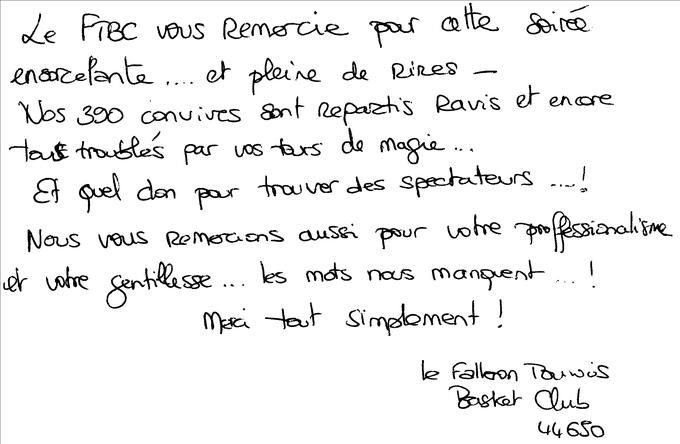 Le FTBC vous Remercie pour cette soirée
ensorcelante .... et pleine de Rires –
Nos 390 convives sont Repartis Ravis et encore
tous troublés par vos tours de magie ...
Et quel don pour trouver des spectateurs ....!
Nous vous Remercions aussi pour votre proffessionalisme
et votre gentillesse ... les mots nous manquent ... !
Merci tout simplement !
le Falleron
Basket Club
44650